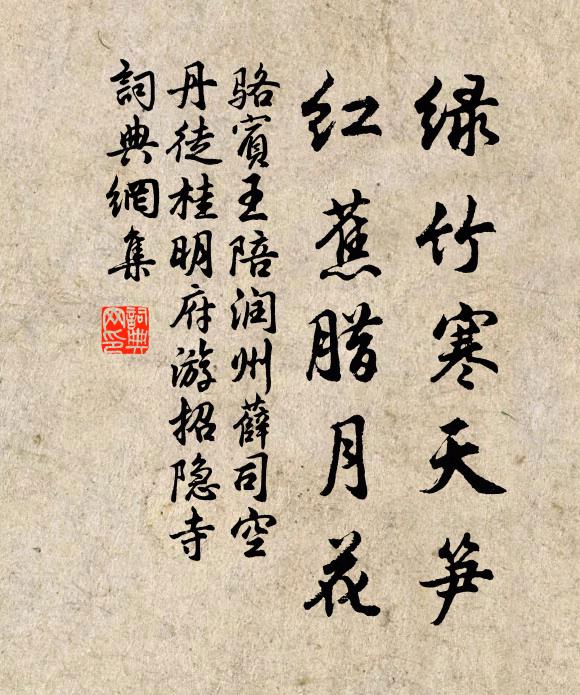 绿竹寒天笋
红蕉腊月花
骆宾王陪润州薛司空
丹徒桂明府游招隐寺
詞典網集
詞典网印